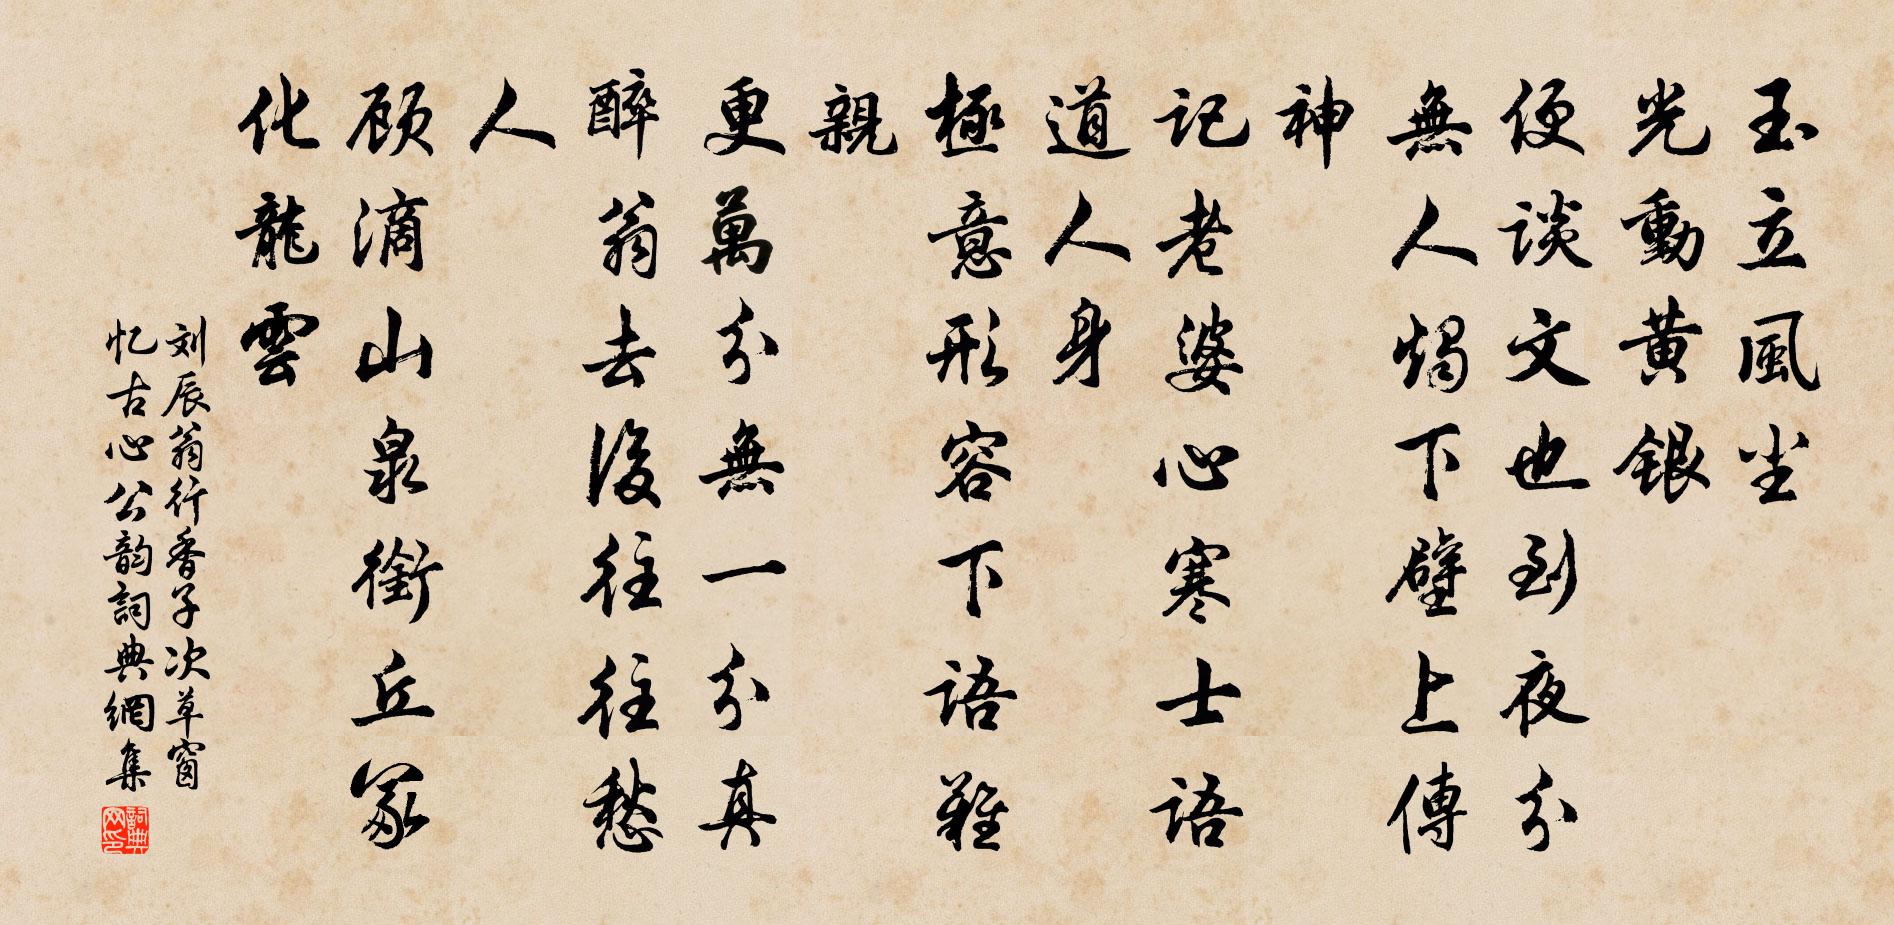 玉立風尘
光動黄銀
便谈文也到夜分
無人烛下壁上傳
神
记老婆心寒士语
道人身
極意形容下语難
親
更萬分無一分真
醉翁去後往往愁
人
顾滴山泉衔丘冢
化龍雲
刘辰翁行香子次草窗
忆古心公韵詞典網集
詞典
网印